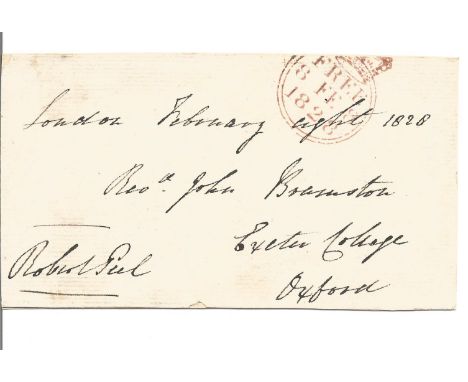 London February eight 1828
FREE
8 FE 8
1828
Revd. John Bramston
Exeter College
Robert Peel
Oxford